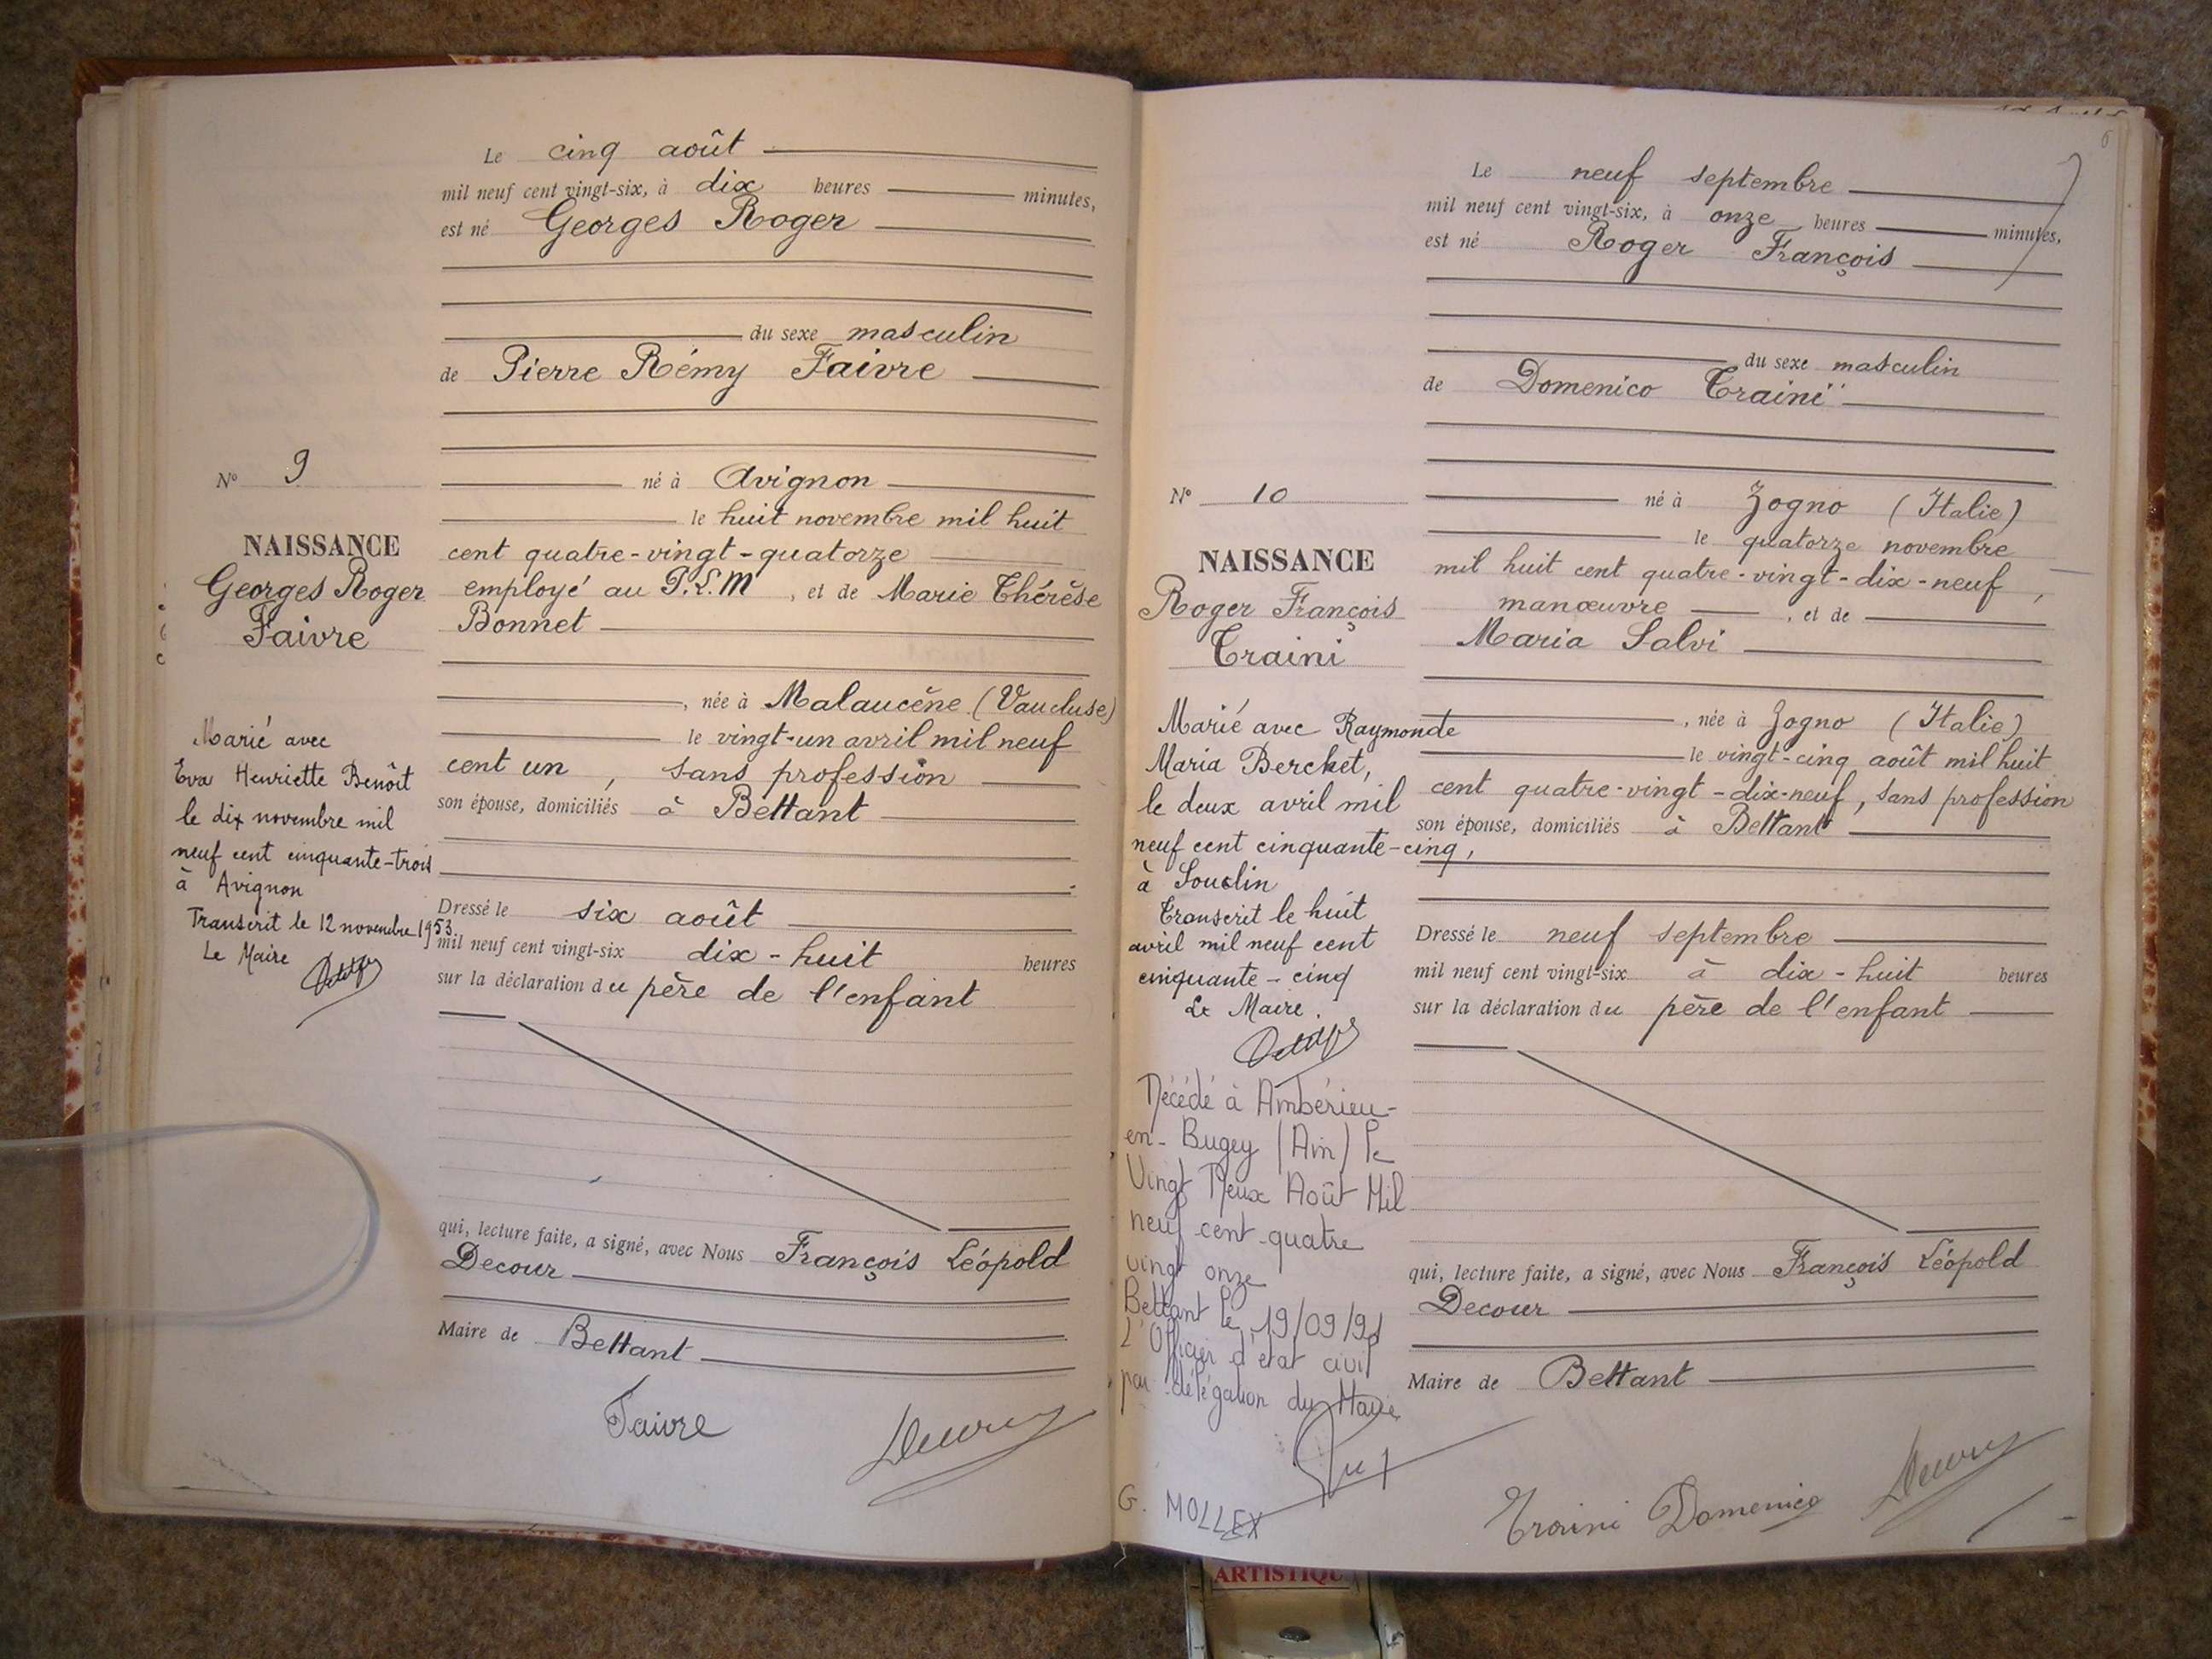 Le cinq août
mil neuf cent vingt-six, à dix heures minutes,
est né Georges Roger
du sexe masculin
de Pierre Rémy Faivre
né à Avignon
le huit novembre mil huit
cent quatre-vingt-quatorze
employé au P.L.M, et de Marie Thérèse
Bonnet
, née à Malaucène (Vaucluse)
le vingt-un avril mil neuf
cent un, sans profession
son épouse, domiciliés à Bettant
Dressé le six août
mil neuf cent vingt-six dix-huit heures
sur la déclaration du père de l'enfant
qui, lecture faite, a signé, avec Nous François Léopold
Decour
Maire de Bettant
Faivre
N° 9
NAISSANCE
Georges Roger
Faivre
Marié avec
Eva Henriette Benôit
le dix novembre mil
neuf cent cinquante-trois
à Avignon
Transcrit le 12 novembre 1953.
Le Maire
6
Le neuf septembre
mil neuf cent vingt-six, à onze heures minutes,
est né Roger François
du sexe masculin
de Domenico Traini
né à Zogno (Italie)
le quatorze novembre
mil huit cent quatre-vingt-dix-neuf,
manœuvre, et de
Maria Salvi
, née à Zogno (Italie)
le vingt-cinq août mil huit
cent quatre-vingt-dix-neuf, sans profession
son épouse, domiciliés à Bettant
Dressé le neuf septembre
mil neuf cent vingt-six à dix-huit heures
sur la déclaration du père de l'enfant
qui, lecture faite, a signé, avec Nous François Léopold
Decour
Maire de Bettant
Traini Domenico
N° 10
NAISSANCE
Roger François
Traini
Marié avec Raymonde
Maria Berchet,
le deux avril mil
neuf cent cinquante-cinq,
à Souclin
Transcrit le huit
avril mil neuf cent
cinquante-cinq
Le Maire.
Décédé à Ambérieu-
en-Bugey (Ain) le
Vingt Deux Août Mil
neuf cent quatre
vingt onze
Bettant le 19/09/91
L'Officier d'état civil
par délégation du Maire
G. MOLLEX
ARTISTIQU